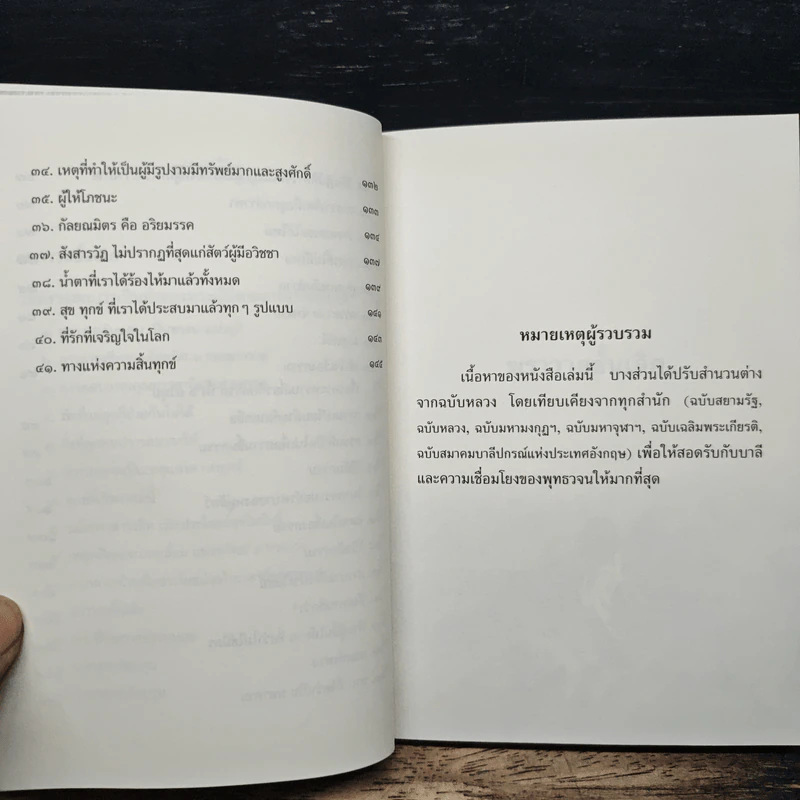 ๓๔. เหตุที่ทำให้เป็นผู้มีรูปงามมีทรัพย์มากและสูงศักดิ์ ๑๓๒
๓๕. ผู้ให้โภชนะ ๑๓๓
๓๖. กัลยณมิตร คือ อริยมรรค ๑๓๔
๓๗. สังสารวัฏ ไม่ปรากฏที่สุดแก่สัตว์ผู้มีอวิชชา ๑๓๗
๓๘. น้ำตาที่เราได้ร้องไห้มาแล้วทั้งหมด ๑๓๙
๓๙. สุข ทุกข์ ที่เราได้ประสบมาแล้วทุกๆ รูปแบบ ๑๔๑
๔๐. ที่รักที่เจริญใจในโลก ๑๔๓
๔๑. ทางแห่งความสิ้นทุกข์ ๑๔๕
หมายเหตุผู้รวบรวม
เนื้อหาของหนังสือเล่มนี้ บางส่วนได้ปรับสำนวนต่าง
จากฉบับหลวง โดยเทียบเคียงจากทุกสำนัก (ฉบับสยามรัฐ,
ฉบับหลวง, ฉบับมหามงกุฏฯ, ฉบับมหาจุฬาฯ, ฉบับเฉลิมพระเกียรติ,
ฉบับสมาคมบาลีปกรณ์แห่งประเทศอังกฤษ) เพื่อให้สอดรับกับบาลี
และความเชื่อมโยงของพุทธวจนให้มากที่สุด